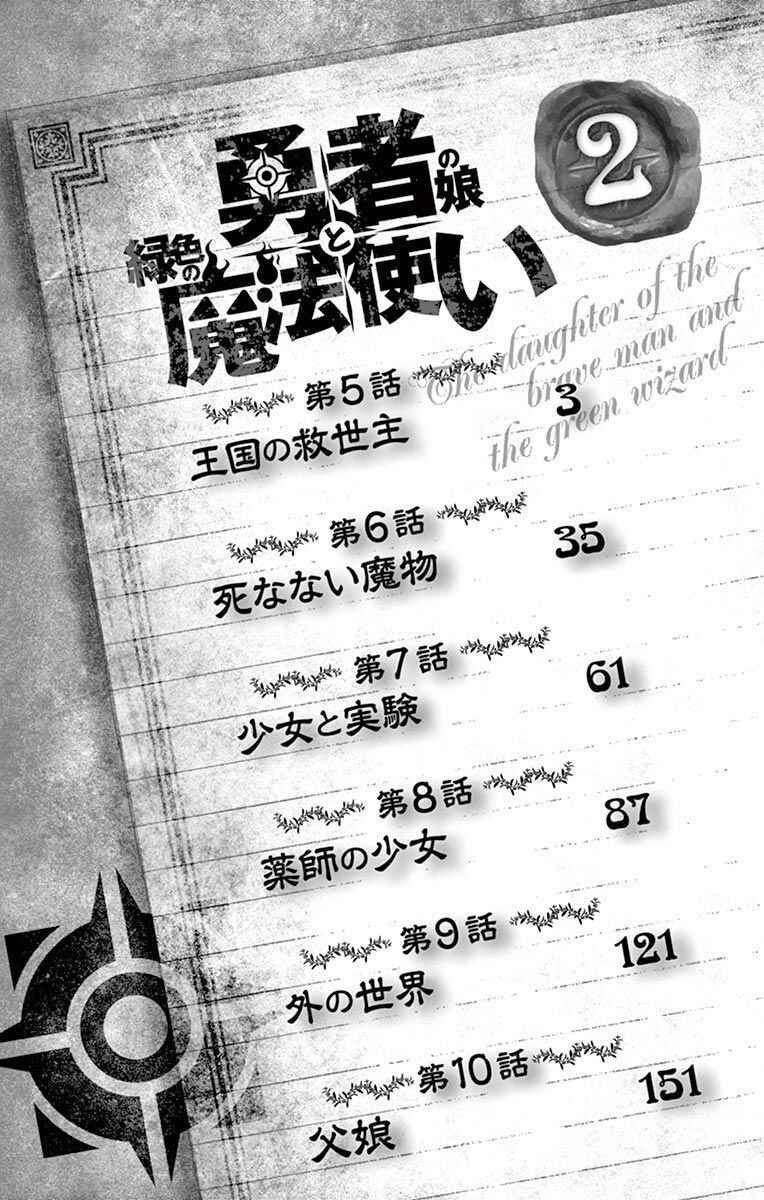 勇者の娘
と
緑色の
魔法使い
2
The daughter of the
brave man and
the green wizard
第5話
王国の救世主 3
第6話
死なない魔物 35
第7話
少女と実験 61
第8話
薬師の少女 87
第9話
外の世界 121
第10話
父娘 151